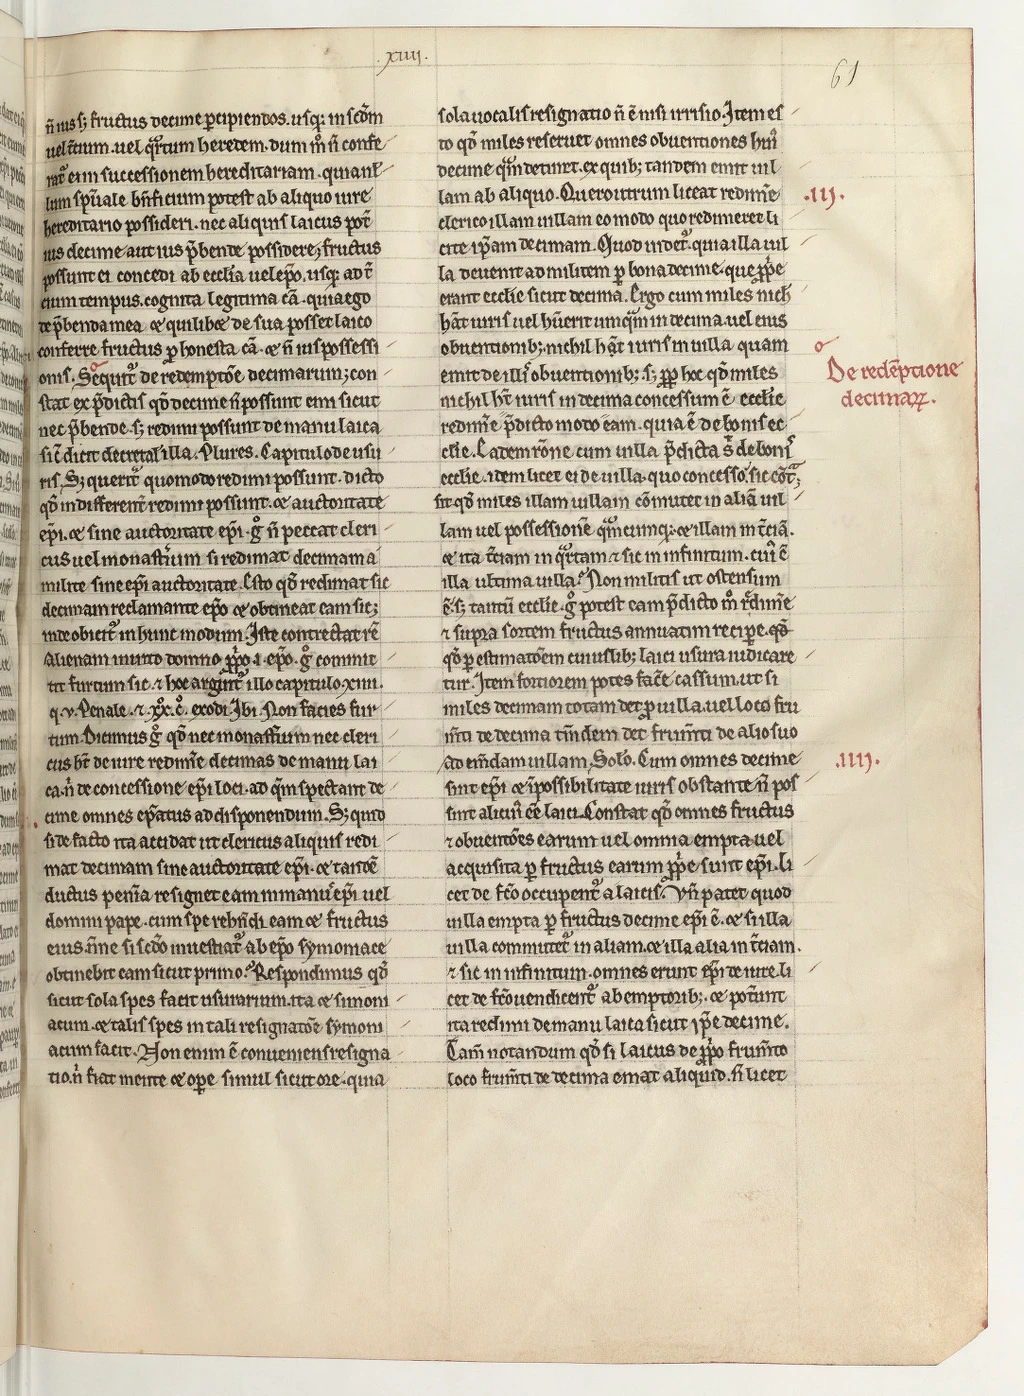 .xiiii.
61
n̄ ius s; fructus decime ꝑcipiendos. usq; in scd̄m
uel t̄cium. uel qᷓrtum heredem. dum m̊ n̄ confe
rat̉ eiui successionem hereditariam. quia nl̄
lum sp̄uale bn̄ficium potest ab aliquo iure
hereditario possideri. nec aliquis laicus pot̄
ius decime aut ius p̄bende possidere; fructus
possunt ei concedi ab ecclīa uel ep̄o. usq; ad t̄
cium tempus. cognita legitima cā. quia ego
de p̄benda mea ⁊ quilibet de sua posset laico
conferre fructus ꝑ honesta cā. ⁊ n̄ ius possessi
onis. Sequit̉ de redemptōe decimarum; con
stat ex p̄dictis qd̄ decime n̄ possunt emi sicut
nec p̄bende. s; redimi possunt de manu laica
sic̄ dicit decretal̓ illa. Plures. Capitulo de usu
ris. S; querit̉ quomodo redimi possunt. dicto
qd̄ indifferent̄ redimi possunt. ⁊ auctoritate
ep̄i. ⁊ sine auctoritate ep̄i. g̊ n̄ peccat cleri
cus uel monast̄ium si redimat decimam a
milite sine ep̄i auctoritate. Esto qd̄ redimat sic
decimam reclamante ep̄o ⁊ obtineat eam sic;
inde obicit̉ in hunc modum. Iste contrectat rē
alienam inuito domno ꝓpo .i. ep̄o. g̊ commit
tit furtum sic. ⁊ hoc arguit̉ illo capitulo xiiii.
q. v. Penale. ⁊ xx.c̊. exodi. Ibi. Non facies fur
tum. Dicimus g̊ qd̄ nec monast̄ium nec cleri
cus ht̄ de iure redim̄e decimas de manu lai
ca. n̄ de concessione ep̄i loci. ad qm̄ spectant de
cime omnes ep̄atus ad disponendum. S; quid
si de facto ita accidat ut clericus aliquis redi
mat decimam sine auctoritate ep̄i. ⁊ tandē
ductus penīa resignet eam in manu ep̄i uel
domini pape. cum spe rehn̄di eam ⁊ fructus
eius. n̄ne si sc̄do inuestiat̉ ab ep̄o symoniace
obtinebit eam sicut primo. Respondimus qd̄
sicut sola spes facit usurarium. ita ⁊ simoni
acum. ⁊ talis spes in tali resignatōe symoni
acum facit. Non enim ē conueniens resigna
tio. n̄ fiat mente ⁊ oꝑe simul sicut ore. quia
sola uocalis resignatio n̄ ē nisi irrisio. Item es
to qd̄ miles reseruet omnes obuentiones huī
decime qm̄ detinet. ex quib; tandem emit uil
lam ab aliquo. Quero utrum liceat redim̄e
clerico illam uillam eo modo quo redimeret li
cite ip̄am decimam. Quod uidet̉. quia illa uil
la deuenit ad militem ꝑ bona decime. que ꝓp̄e
erant ecclīe sicut decima. Ergo cum miles nich̄
hāt iuris uel hūerit umqm̄ in decima. uel eius
obuentionib; nichil hāt iuris in uilla quam
emit de illis obuentionib; s; ꝓp hoc qd̄ miles
nichil ht̄ iuris in decima concessum ē ecclīe
redim̄e p̄dicto modo eam. quia ē de bonis ec
clīe. Eadem rōne cum uilla p̄dicta s̄ de bonis
ecclīe. idem licet ei de uilla. quo concesso. sic cōt̄;
sit qd̄ miles illam uillam cōmutet in aliā uil
lam uel possessionē qm̄cumq; ⁊ illam in t̄ciā.
⁊ ita t̄ciam in qᷓrtam. ⁊ sic in infinitum. cuỉ ē
illa ultima uilla. Non militis ut ostensum
ē. s; tantū ecclīe. g̊ potest eam p̄dicto m̊ redim̄e
⁊ supra sortem fructus annuatim recipe. qd̄
qd̄ ꝑ estimatōem cuiuslib; laici usura iudicare
tur. Item fortiorem potes fac̄e cassum. ut si
miles decimam totam det ꝓ uilla. uel loco fru
m̄ti de decima tm̄dem det frum̄ti de alio suo
ad emdam uillam. Solō. Cum omnes decime
sint ep̄i ⁊ īpossibilitate iuris obstante n̄ pos
sint alicuỉ ēe laici. Constat qd̄ omnes fructus
⁊ obuentōes earum uel omnia empta uel
acquisita ꝑ fructus earum ꝓp̄e sunt ep̄i. li
cet de fc̄o occupent̉ a laicis. Vn̄ patet quod
uilla empta ꝑ fructus decime ep̄i ē. ⁊ si illa
uilla commutet̉ in aliam. ⁊ illa alia in t̄ciam.
⁊ sic in infinitum. omnes erunt ep̄i de iure. li
cet de fc̄o uendicent̉ ab emptorib; ⁊ pot̄unt
ita redimi de manu laica sicut ip̄e decime.
Tam̄ notandum qd̄ si laicus de ꝓpo frum̄to
loco frum̄ti de decima emat aliquid. n̄ licet
.iij.
De redēptione
decimaꝝ.
.iiij.